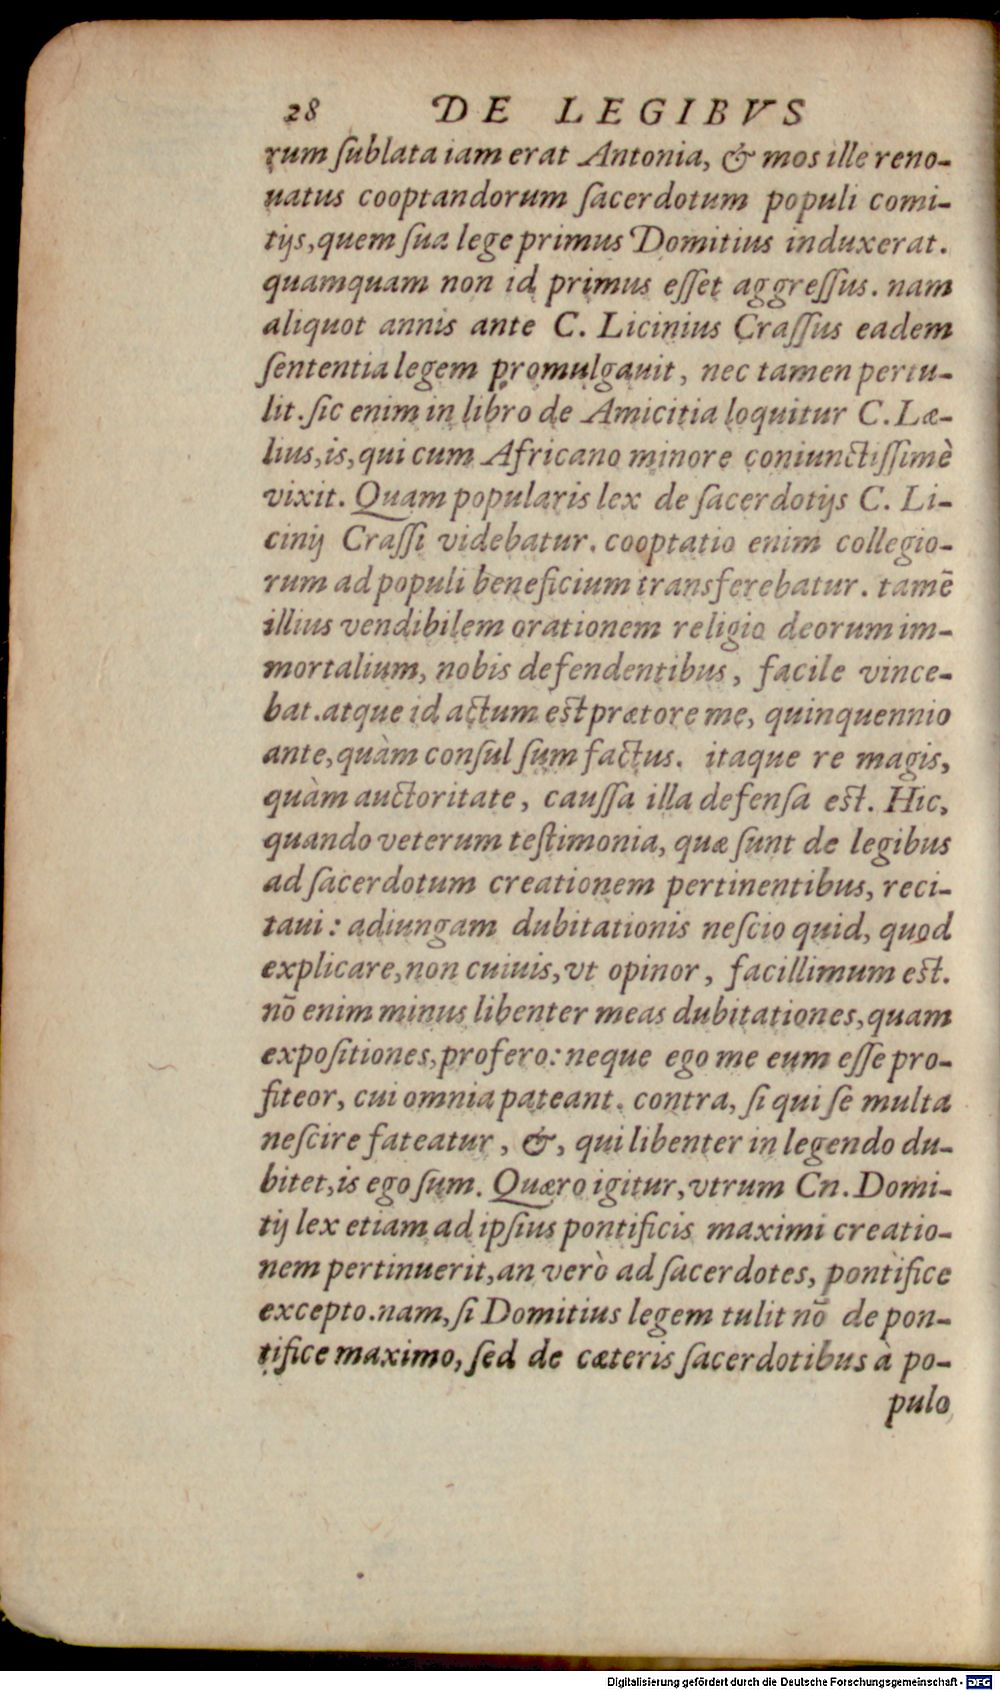 28 DE LEGIBVS
rum ſublata iam erat Antonia, & mos ille reno-
uatus cooptandorum ſacerdotum populi comi-
tijs, quem ſua lege primus Domitius induxerat.
quamquam non id primus eſſet aggreſſus. nam
aliquot annis ante C. Licinius Craſſus eadem
ſententia legem promulgauit, nec tamen pertu-
lit. ſic enim in libro de Amicitia loquitur C. Læ-
lius, is, qui cum Africano minore coniunctiſſimè
vixit. Quam popularis lex de ſacerdotijs C. Li-
cinij Craſſi videbatur. cooptatio enim collegio-
rum ad populi beneficium transferebatur. tamē
illius vendibilem orationem religio deorum im-
mortalium, nobis defendentibus, facile vince-
bat. atque id actum est prætore me, quinquennio
ante, quàm conſul ſum factus. itaque re magis,
quàm auctoritate, cauſſa illa defenſa est. Hic,
quando veterum teſtimonia, quæ ſunt de legibus
ad ſacerdotum creationem pertinentibus, reci-
taui: adiungam dubitationis neſcio quid, quod
explicare, non cuiuis, vt opinor, facillimum est.
nō enim minus libenter meas dubitationes, quam
expoſitiones, profero: neque ego me eum eſſe pro-
fiteor, cui omnia pateant. contra, ſi qui ſe multa
neſcire fateatur, &, qui libenter in legendo du-
bitet, is ego ſum. Quæro igitur, vtrum Cn. Domi-
tij lex etiam ad ipſius pontificis maximi creatio-
nem pertinuerit, an verò ad ſacerdotes, pontifice
excepto. nam, ſi Domitius legem tulit nō de pon-
tifice maximo, ſed de cæteris ſacerdotibus à po-
pulo
Digitalisierung gefördert durch die Deutsche Forschungsgemeinschaft - DFG